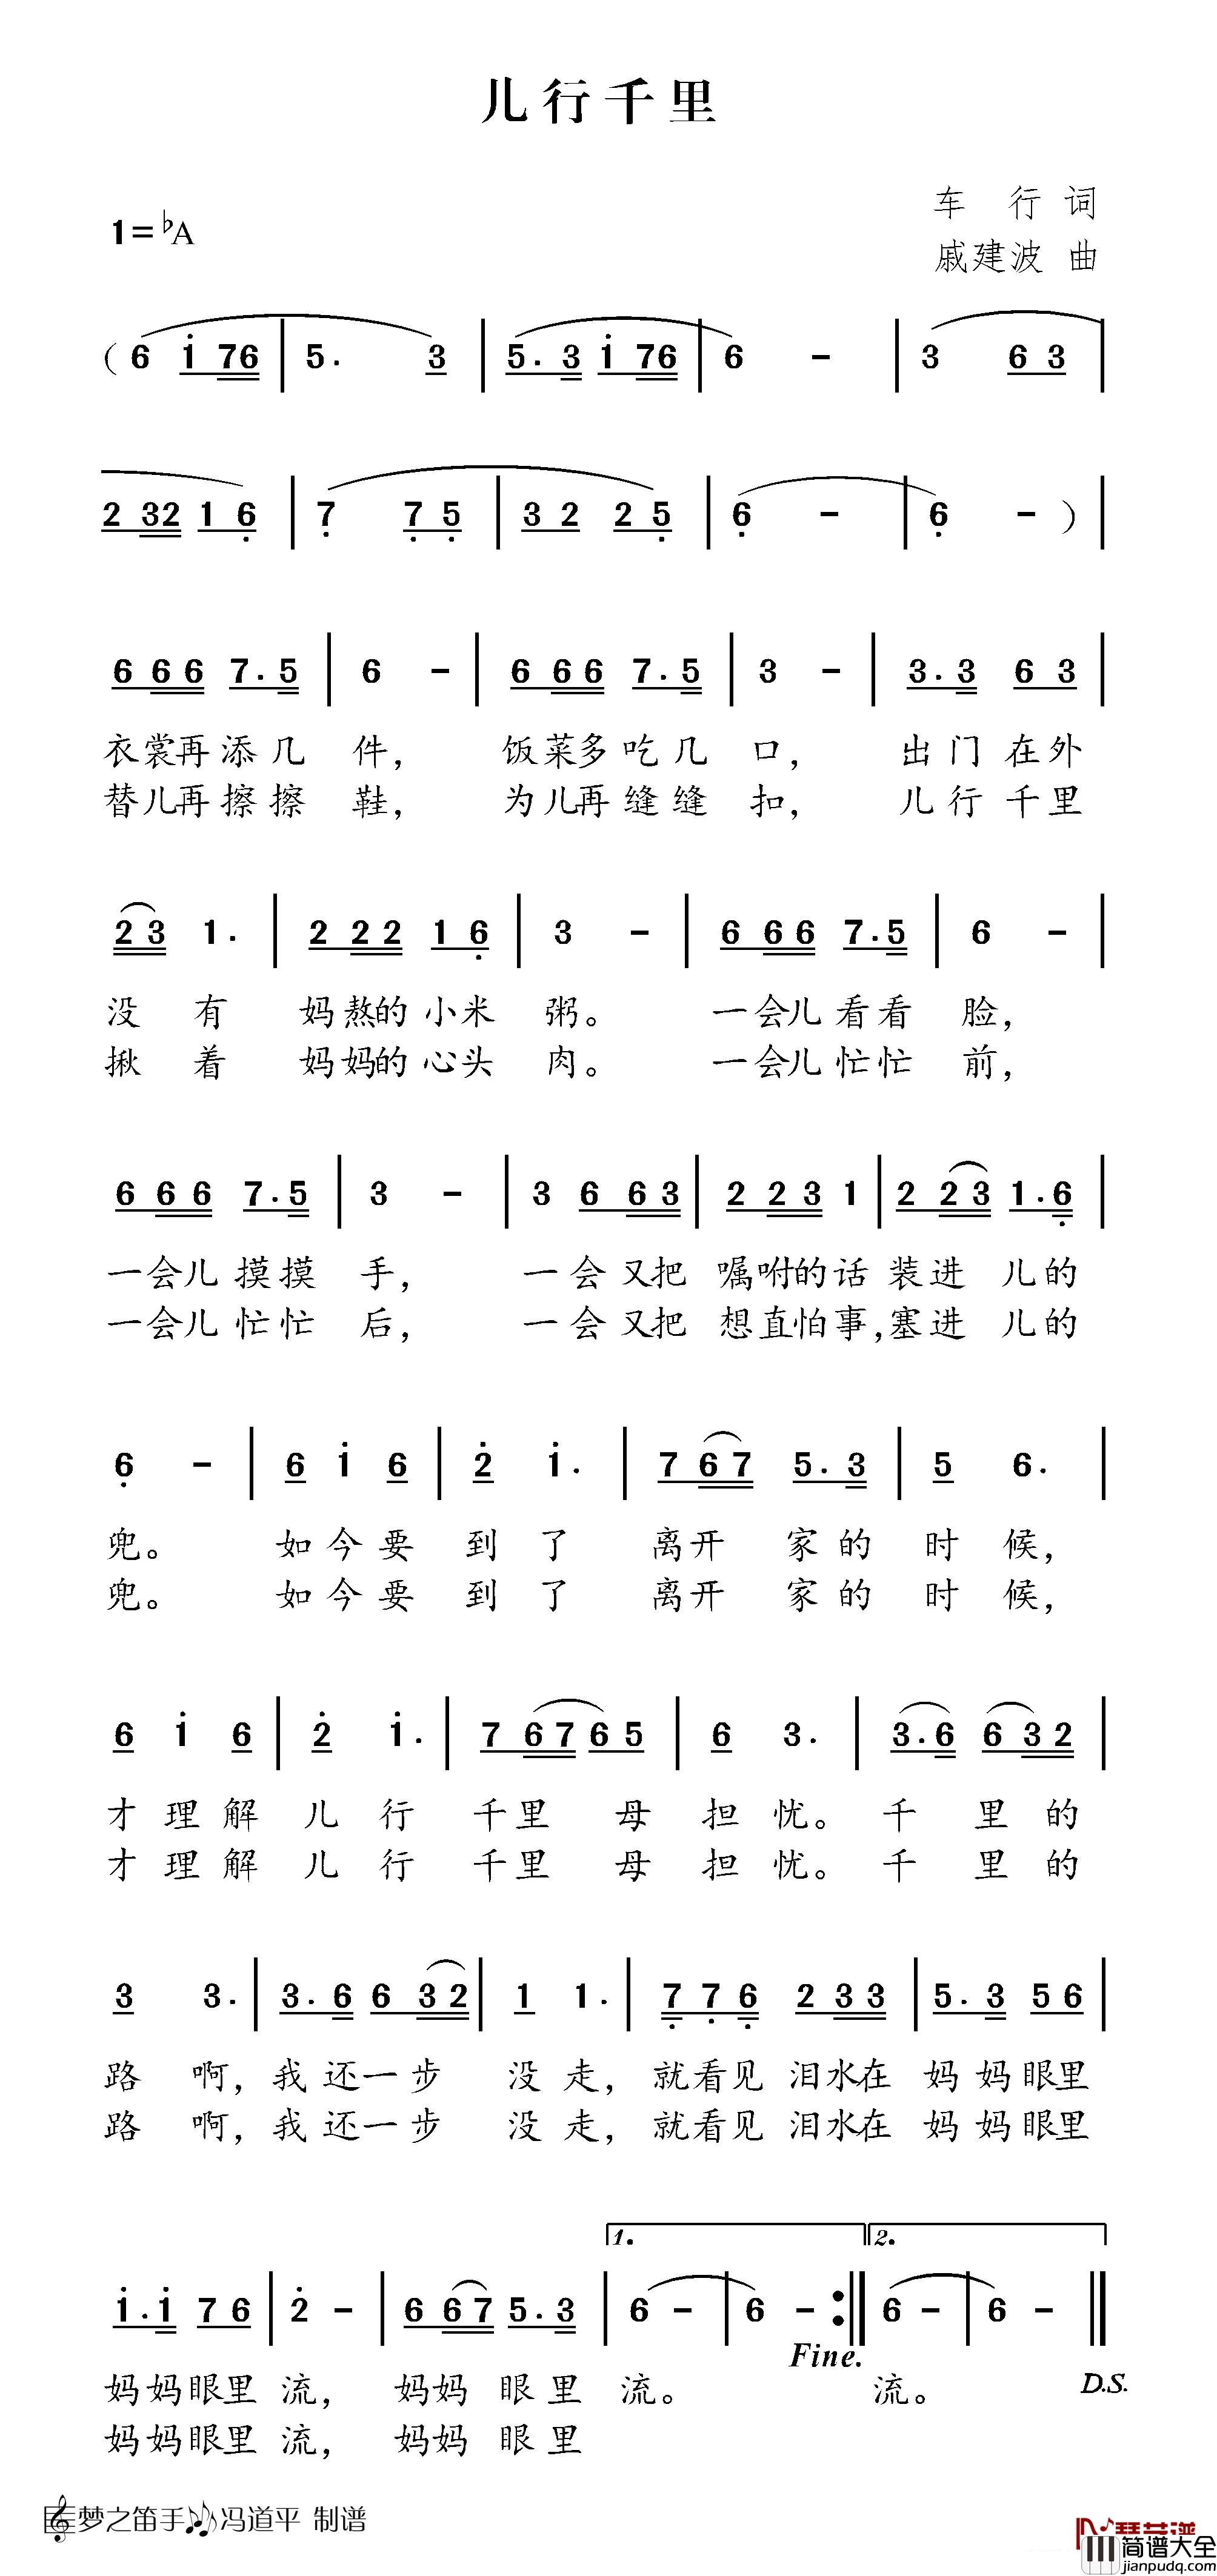 儿行千里
车 行 词
1=♭A
戚建波 曲
( 6 i 76 | 5. 3 | 5. 3 i 76 | 6 - | 3 6 3 |
2 32 1 6 | 7 7 5 | 3 2 2 5 | 6 - | 6 - ) |
6 6 6 7. 5 | 6 - | 6 6 6 7. 5 | 3 - | 3. 3 6 3 |
衣裳再添几 件， 饭菜多吃几 口， 出门在外
替儿再擦擦 鞋， 为儿再缝缝 扣， 儿行千里
2 3 1. | 2 2 2 1 6 | 3 - | 6 6 6 7. 5 | 6 - |
没 有 妈熬的小米 粥。 一会儿看看 脸，
揪 着 妈妈的心头 肉。 一会儿忙忙 前，
6 6 6 7. 5 | 3 - | 3 6 6 3 | 2 2 3 1 | 2 2 3 1. 6 |
一会儿摸摸 手， 一会又把 嘱咐的话 装进 儿的
一会儿忙忙 后， 一会又把 想直怕事，塞进 儿的
6 - | 6 i 6 | 2 i. | 7 6 7 5. 3 | 5 6. |
兜。 如今要 到 了 离开 家的 时 候，
兜。 如今要 到 了 离开 家的 时 候，
6 i 6 | 2 i. | 7 6 7 6 5 | 6 3. | 3. 6 6 3 2 |
才理解 儿 行 千里 母 担 忧。 千 里 的
才理解 儿 行 千里 母 担 忧。 千 里 的
3 3. | 3. 6 6 3 2 | 1 1. | 7 7 6 2 3 3 | 5. 3 5 6 |
路 啊，我还一步 没走，就看见 泪水在 妈妈眼里
路 啊，我还一步 没走，就看见 泪水在 妈妈眼里
1. 2.
i. i 7 6 | 2 - | 6 6 7 5. 3 | 6 - | 6 - :|| 6 - | 6 - ||
Fine.
D.S.
妈妈眼里 流， 妈妈 眼里 流。 流。
妈妈眼里 流， 妈妈 眼里
梦之笛手 冯道平 制谱
简谱大全
jianpudq.com